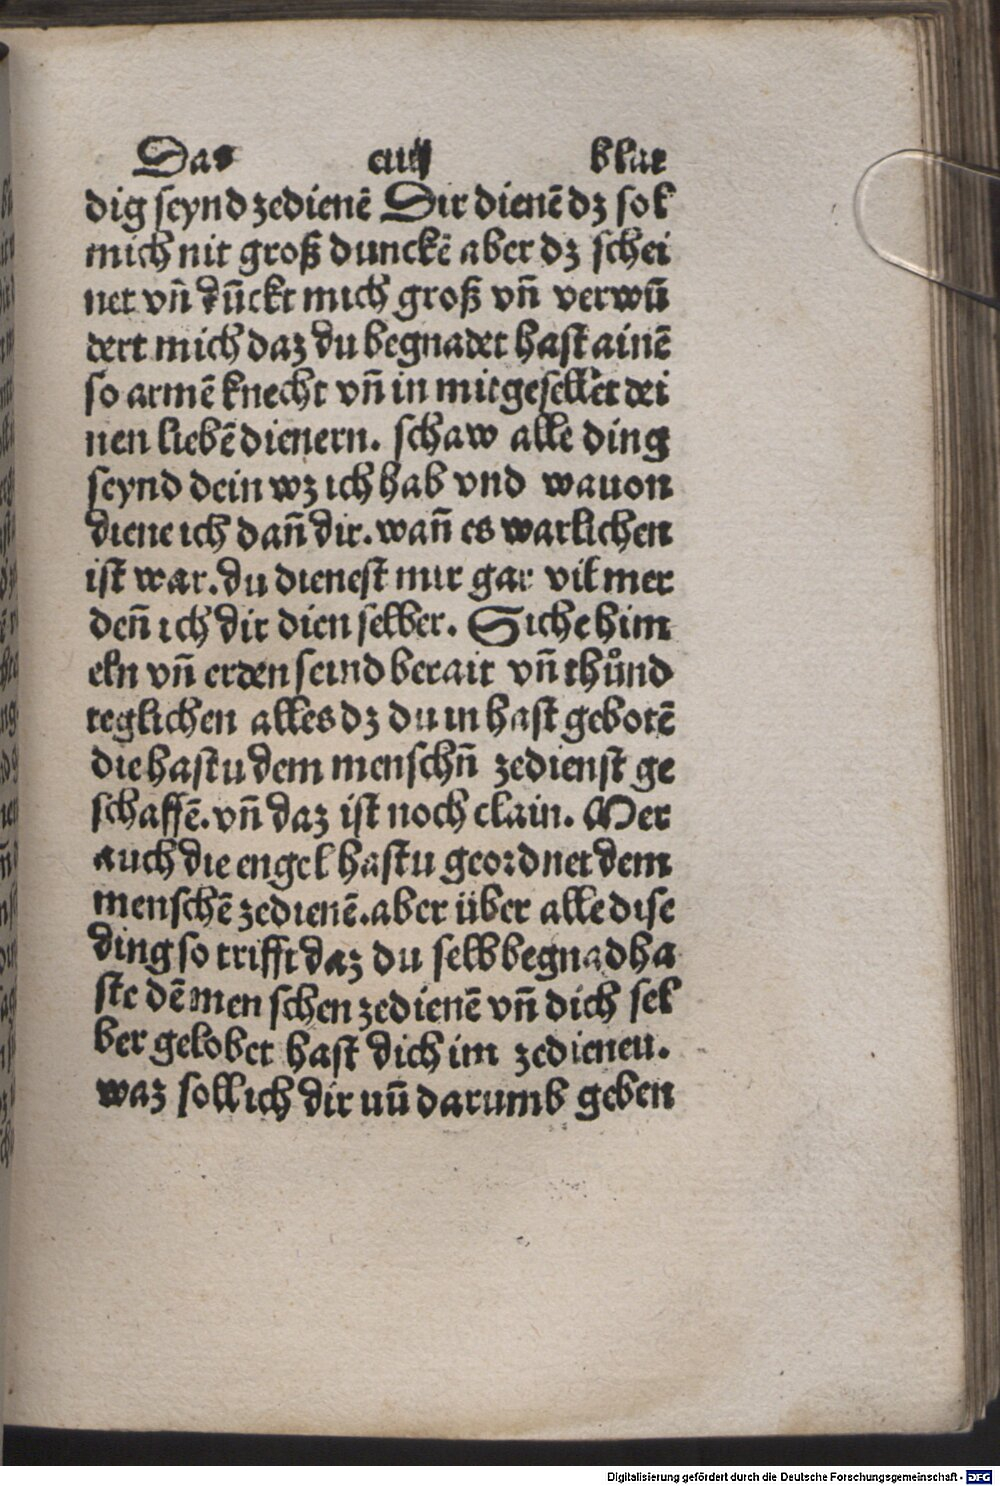 Das cuij blat
dig seynd zedienē Dir dienē dz sol
mich nit groß dunckē aber dz schei
net vn̄ dūckt mich groß vn̄ verwū
dert mich daz du begnadet hast ainē
so armē knecht vn̄ in mitgesellet dei
nen liebē dienern. schaw alle ding
seynd dein wz ich hab vnd wauon
diene ich dan̄ dir. wan̄ es warlichen
ist war. du dienest mir gar vil mer
den̄ ich dir dien selber. Siche him
eln vn̄ erden seind berait vn̄ thůnd
teglichen alles dz du in hast gebotē
die hastu dem menschn̄ zedienst ge
schaffē. vn̄ daz ist noch clain. Mer
auch die engel hastu geordnet dem
menschē zedienē. aber über alle dise
ding so trifft daz du selb begnad ha
ste dē men schen zedienē vn̄ dich sel
ber gelobet hast dich im zedieneu.
waz soll ich dir nū darumb geben
Digitalisierung gefördert durch die Deutsche Forschungsgemeinschaft - DFG